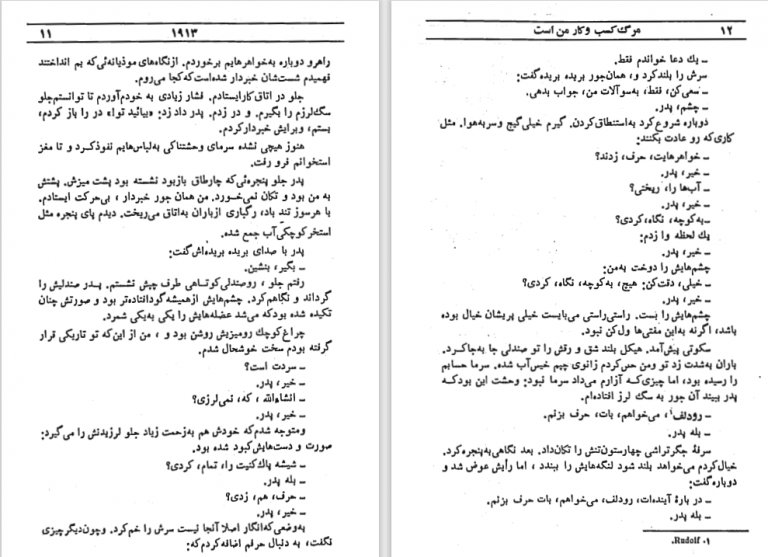 ۱۹۱۳ ۱۱
راهرو دوباره به‌خواهرهایم برخوردم. ازنگاه‌های موذیانه‌ئی‌که بم انداختند
فهمیدم شست‌شان خبردار شده‌است‌که‌کجا می‌روم.
جلو در اتاق‌کارایستادم. فشار زیادی به خودم‌آوردم تا توانستم‌جلو
سگ‌لرزم را بگیرم. و در زدم. پدر داد زد: «بیائید تو!» در را باز کردم،
بستم، وبرایش خبردارکردم.
هنوز هیچی نشده سرمای وحشتناکی به‌لباس‌هایم نفوذکرد و تا مغز
استخوانم فرو رفت.
پدر جلو پنجره‌ئی‌که چارطاق بازبود نشسته بود پشت میزش. پشتش
به من بود و تکان نمی‌خورد. من همان جور خبردار ، بی‌حرکت ایستادم.
با هرسوز تند باد، رگباری ازباران به‌اتاق می‌ریخت. دیدم پای پنجره مثل
استخرکوچکی‌آب جمع شده.
پدر با صدای بریده بریده‌اش‌گفت:
ـ بگیر، بنشین.
رفتم جلو ، روصندلی‌کوتاهی طرف چپش نشستم. پدر صندلیش را
گرداند و نگاهم‌کرد. چشم‌هایش ازهمیشه‌گودافتاده‌تر بود و صورتش چنان
تکیده شده بودکه می‌شد عضله‌هایش را یکی به‌یکی شمرد.
چراغ‌کوچك رومیزیش روشن بود و ، من از این‌که تو تاریکی قرار
گرفته بودم سخت خوشحال شدم.
ـ سردت است؟
ـ خیر، پدر.
ـ انشاءالله ، که، نمی‌لرزی؟
ـ خیر، پدر.
ومتوجه شدم‌که خودش هم به‌زحمت زیاد جلو لرزیدنش را می‌گیرد:
صورت و دست‌هایش‌کبود شده بود.
ـ شیشه پاك‌کنیت را، تمام، کردی؟
ـ بله پدر.
ـ حرف، هم، زدی؟
ـ خیر، پدر.
به‌وضعی‌که‌انگار اصلا آنجا نیست سرش را خم‌کرد. وچون‌دیگرچیزی
نگفت، به دنبال حرفم اضافه‌کردم‌که:
مرگ‌کسب وکار من است ۱۲
ـ یك دعا خواندم فقط.
سرش را بلندکرد و، همان‌جور بریده بریده‌گفت:
ـ سعی‌کن، فقط، به‌سوآلات من، جواب بدهی.
ـ چشم، پدر.
دوباره شروع‌کرد به‌استنطاق‌کردن. گیرم خیلی‌گیج وسربه‌هوا. مثل
کاری‌که رو عادت بکنند:
ـ خواهرهایت، حرف، زدند؟
ـ خیر، پدر.
ـ آب‌ها را، ریختی؟
ـ خیر، پدر.
ـ به‌کوچه، نگاه،کردی؟
یك لحظه وا زدم:
ـ خیر، پدر.
چشم‌هایش را دوخت به‌من:
ـ خیلی، دقت‌کن: هیچ، به‌کوچه، نگاه، کردی؟
ـ خیر، پدر.
چشم‌هایش را بست. راستی‌راستی می‌بایست خیلی پریشان خیال بوده
باشد، اگرنه به‌این مفتی‌ها ول‌کن نبود.
سکوتی پیش‌آمد. هیکل بلند شق و رقش را تو صندلی جا به‌جاکرد.
باران به‌شدت زد تو ومن حس‌کردم زانوی چپم خیس‌آب شده. سرما حسابم
را رسیده بود، اما چیزی‌که آزارم می‌داد سرما نبود: وحشت این بودکه
پدر ببیند آن جور به سگ لرز افتاده‌ام.
ـ رودلف۱، می‌خواهم، بات، حرف بزنم.
ـ بله پدر.
سرفهٔ جگرتراشی چهارستون‌تنش را تکان‌داد. بعد نگاهی به‌پنجره‌کرد.
خیال‌کردم می‌خواهد بلند شود لنگه‌هایش را ببندد ، اما رأیش عوض شد و
دوباره‌گفت:
ـ در بارهٔ آینده‌ات، رودلف، می‌خواهم، بات حرف بزنم.
ـ بله پدر.
۱. Rudolf.